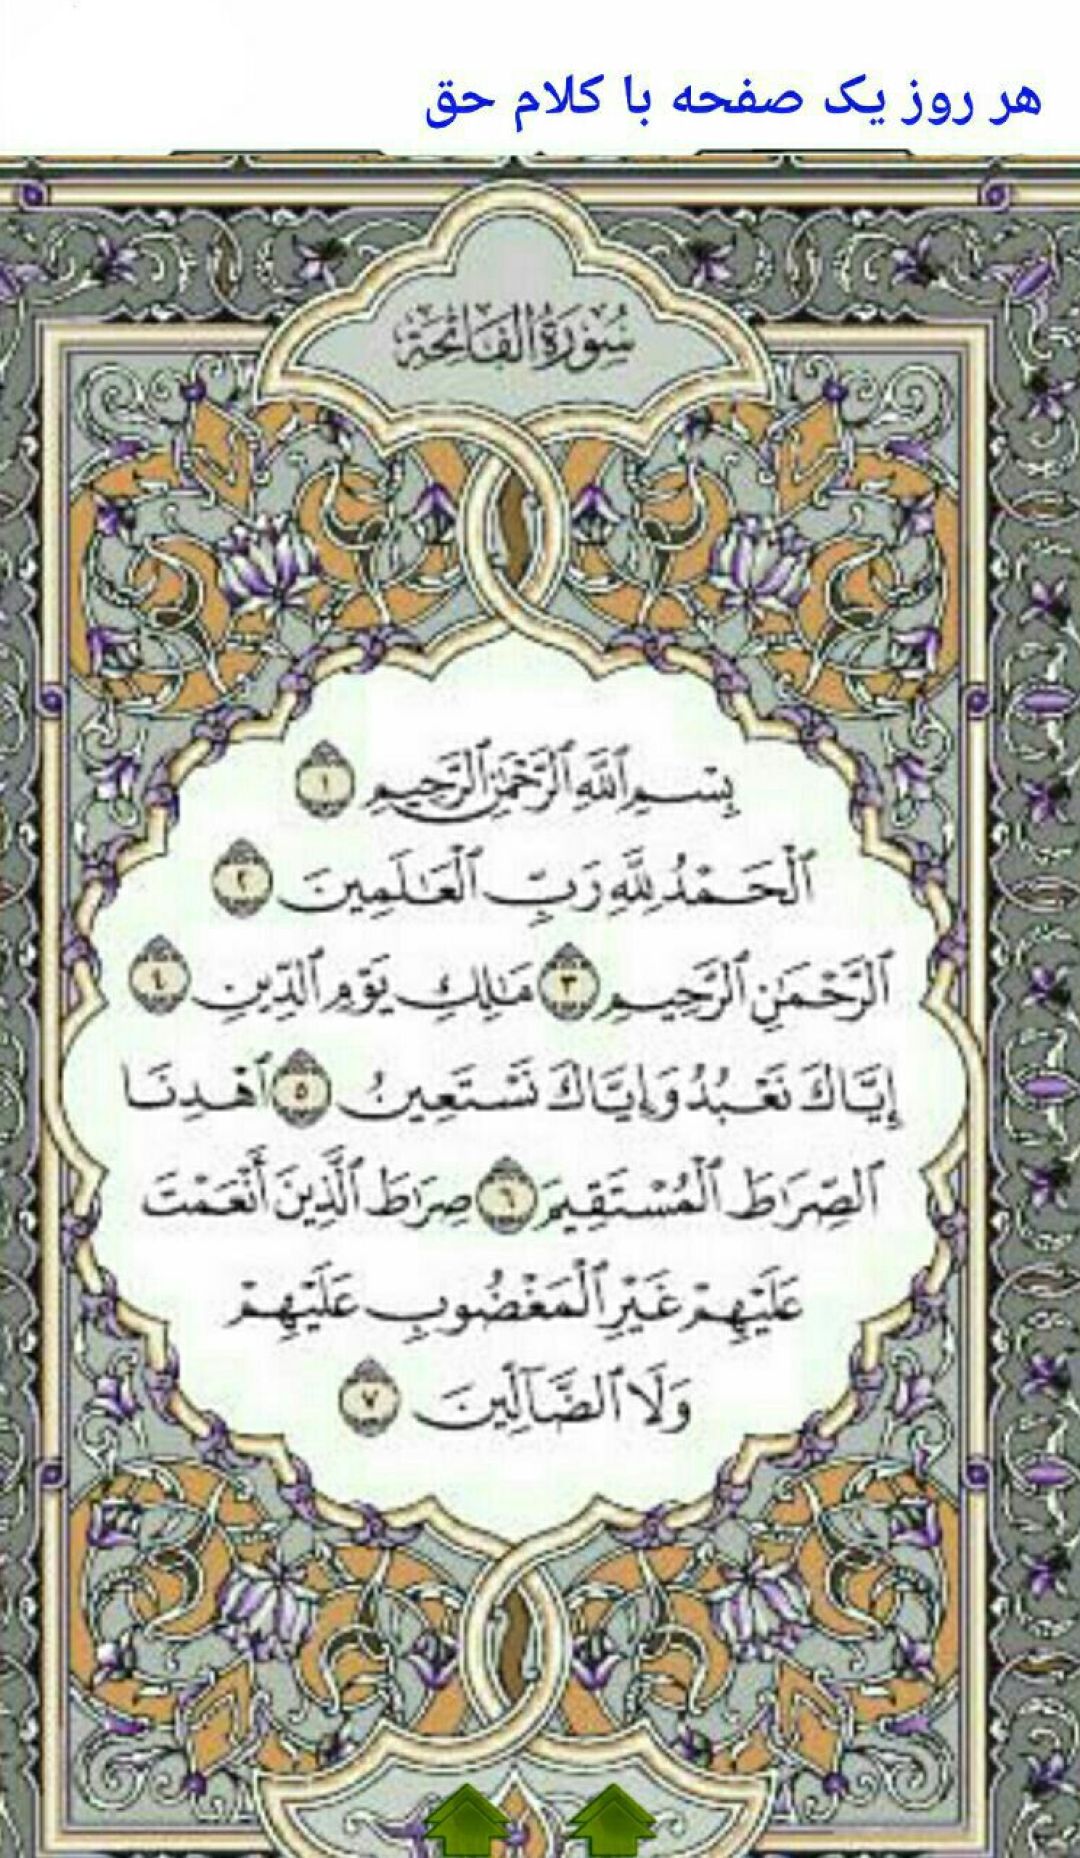 هر روز یک صفحه با کلام حق
سُورَةُ الفَاتِحَةِ
بِسْمِ ٱللَّهِ ٱلرَّحْمَٰنِ ٱلرَّحِيمِ ١
ٱلْحَمْدُ لِلَّهِ رَبِّ ٱلْعَٰلَمِينَ ٢
ٱلرَّحْمَٰنِ ٱلرَّحِيمِ ٣ مَٰلِكِ يَوْمِ ٱلدِّينِ ٤
إِيَّاكَ نَعْبُدُ وَإِيَّاكَ نَسْتَعِينُ ٥ ٱهْدِنَا
ٱلصِّرَٰطَ ٱلْمُسْتَقِيمَ ٦ صِرَٰطَ ٱلَّذِينَ أَنْعَمْتَ
عَلَيْهِمْ غَيْرِ ٱلْمَغْضُوبِ عَلَيْهِمْ
وَلَا ٱلضَّآلِّينَ ٧